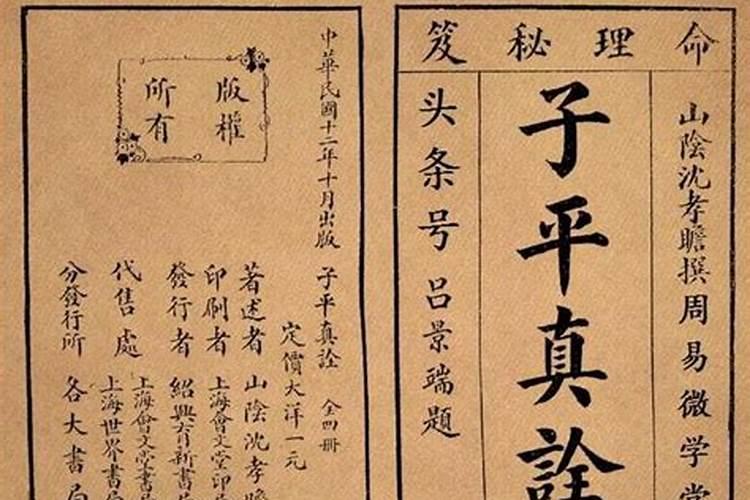 命理秘笈
山陰沈孝瞻撰周易微学堂
子平真詮
头条号吕景端題
中華民國十二年十月出版
版權
所有
子平真詮 全四冊
定價大洋一元
著述者 山陰沈孝瞻
印刷者 上海會文堂印
發行者 紹興育新書局
代售處 上海會文堂書局
上海世界書局
分發行所 各大書局